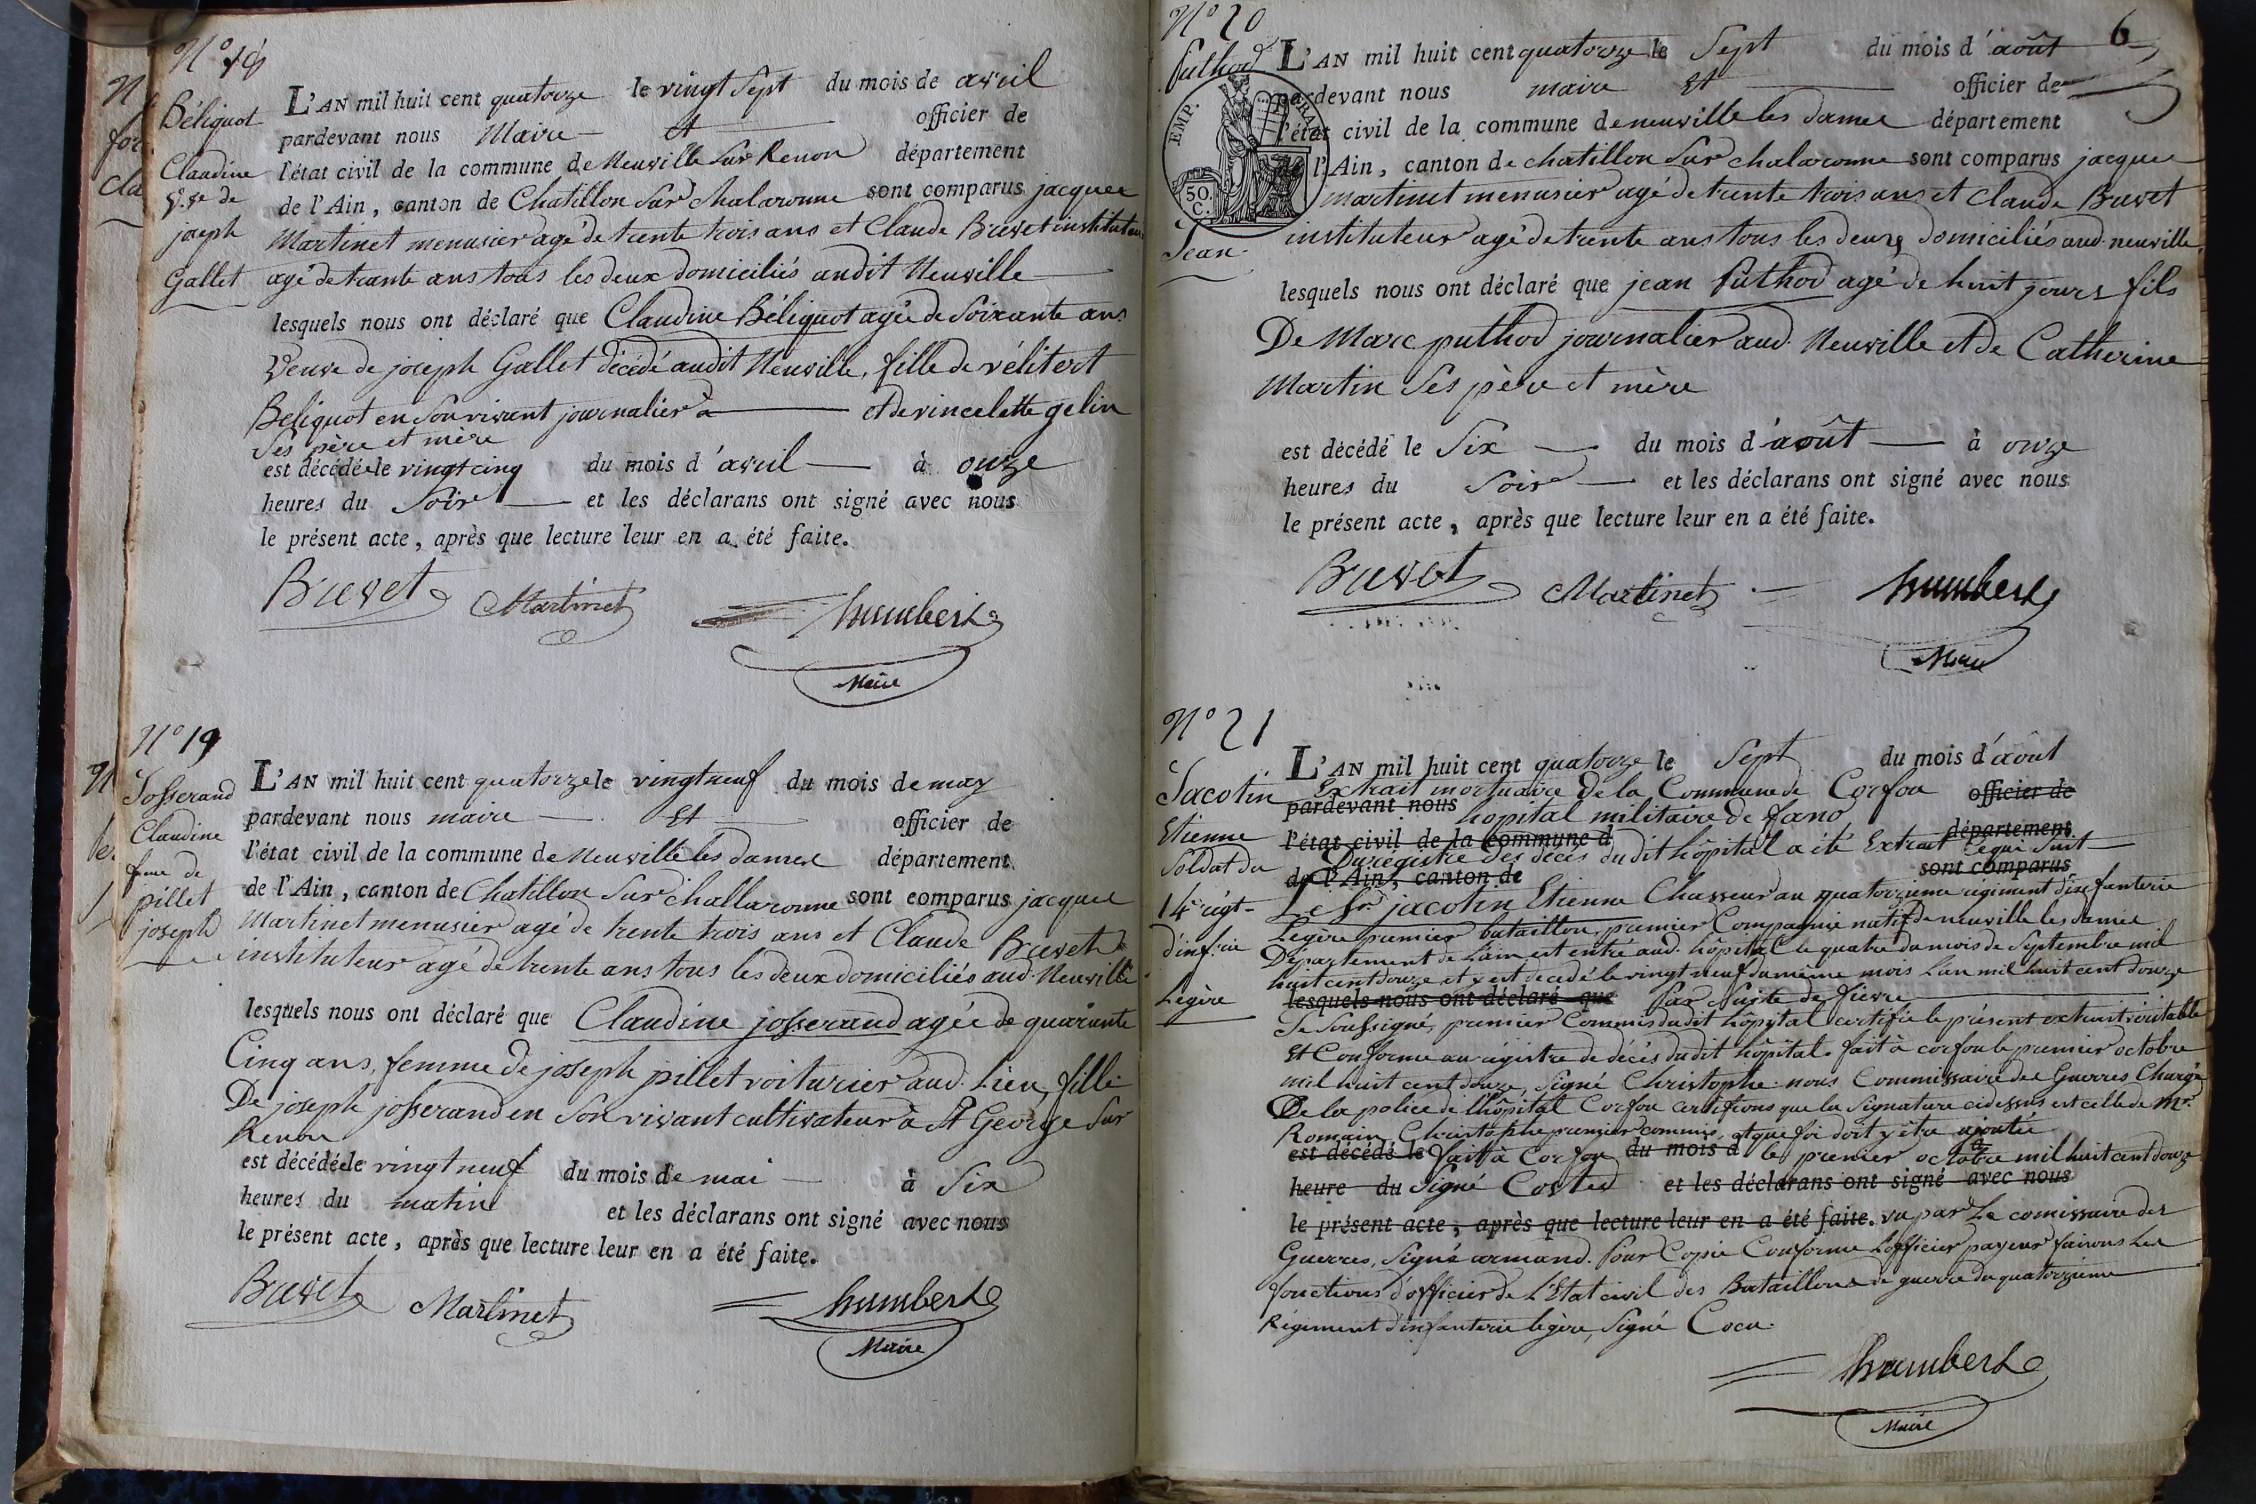 N° 18
Béliquot
Claudine
V.ve de
joseph
Gallet
L'AN mil huit cent quatorze le vingt sept du mois de avril
pardevant nous Maire et officier de
l'état civil de la commune de Neuville sur Renon département
de l'Ain, canton de Chatillon sur chalaronne sont comparus jacques
Martinet menusier agé de trente trois ans et Claude Buvet instituteur
agé de trante ans tous les deux domiciliés audit Neuville
lesquels nous ont déclaré que Claudine Béliquot agée de soixante ans
Veuve de joseph Gallet décédé audit Neuville, fille de
Beliquot en son vivant journalier à et de vincelette gelin
ses père et mère
est décédée le vingt cinq du mois d'avril à onze
heures du soir et les déclarans ont signé avec nous
le présent acte, après que lecture leur en a été faite.
Buvet Martinet humbert
Maire
N° 19
Josserand
Claudine
f.me de
pillet
joseph
L'AN mil huit cent quatorze le vingt neuf du mois de may
pardevant nous maire Et officier de
l'état civil de la commune de Neuville les dames département
de l'Ain, canton de Chatillon sur challaronne sont comparus jacques
Martinet menusier agé de trente trois ans et Claude Buvet
instituteur agé de trente ans tous les deux domiciliés aud. Neuville
lesquels nous ont déclaré que Claudine josserand agée de quarante
Cinq ans, femme de joseph pillet voiturier aud. Lieu, fille
De joseph josserand en son vivant cultivateur à St George sur
Renon
est décédée le vingt neuf du mois de mai à six
heures du matin et les déclarans ont signé avec nous
le présent acte, après que lecture leur en a été faite.
Buvet Martinet humbert
Maire
6
N° 20
puthod
Jean
EMP. FRA
50. C.
L'AN mil huit cent quatorze le sept du mois d'août
pardevant nous maire Et officier de
l'état civil de la commune de neuville les dames département
de l'Ain, canton de chatillon sur chalaronne sont comparus jacques
martinet menusier agé de trente trois ans et Claude Buvet
instituteur agé de trente ans tous les deux domiciliés aud. neuville
lesquels nous ont déclaré que jean puthod agé de huit jours fils
De Marc puthod journalier aud. Neuville et de Catherine
Martin ses père et mère
est décédé le six du mois d'août à onze
heures du soir et les déclarans ont signé avec nous
le présent acte, après que lecture leur en a été faite.
Buvet Martinet humbert
Maire
N° 21
Jacotin
Etienne
soldat du
14e régt
d'inf.rie
Legère
L'AN mil huit cent quatorze le sept du mois d'août
Extrait mortuaire de la Commune de Corfou officier de
pardevant nous hopital militaire de fano
l'état civil de la commune d département
Du registre des décès du dit hôpital a été Extrait ce qui suit
de l'Ain, canton de sont comparus
Le Sr. jacotin Etienne Chasseur au quatorzième régiment d'infanterie
Legère premier bataillon, premier Compagnie natif de neuville les dames
Département de Lain est entré aud. hôpital le quatre du mois de Septembre mil
huit cent douze et y est décédé le vingt neuf du même mois Lan mil huit cent douze
lesquels nous ont déclaré que par suite de fièvre
Je soussigné, premier Commis dudit hôpital certifie le présent extrait véritable
Et Conforme au régistre de décès dudit hôpital. fait à corfou le premier octobre
mil huit cent douze, signé Christophe. nous Commissaire des Guerres Chargé
De la police de l'hôpital Corfou certifions que la signature cidessus est celle de Mr.
Romain Christophe premier commis, et que foi doit y être ajoutée
est décédé le fait à Corfou du mois d le premier octobre mil huit cent douze
à
heure du signé Costes et les déclarans ont signé avec nous
le présent acte, après que lecture leur en a été faite. vu par Le comissaire des
Guerres, signé armand. Pour Copie Conforme L'officier payeur faisons les
fonctions d'officier de L'Etat civil des Bataillons de guerre du quatorzieme
Régiment d'infanterie legère, signé Cocu.
humbert
Maire